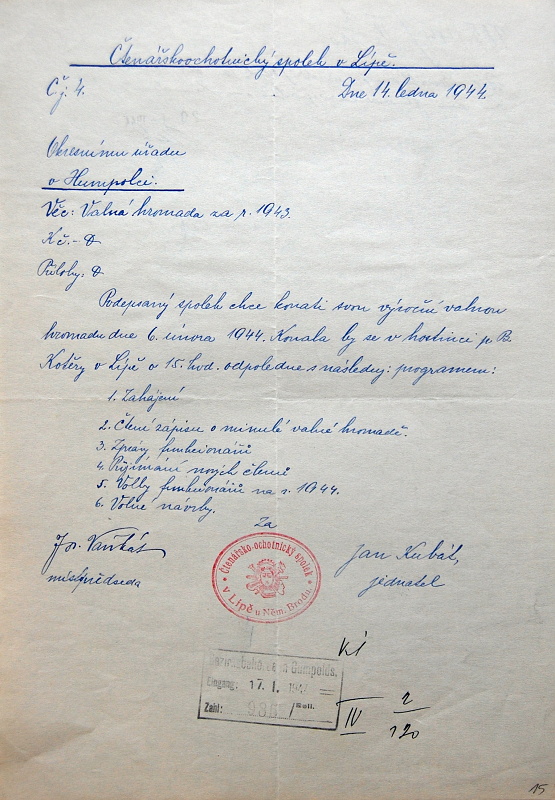 Čtenářskoochotnický spolek v Lípě.
Čj. 4. Dne 14. ledna 1944.
Okresnímu úřadu
v Humpolci.
Věc: Valná hromada za r. 1943.
Kč.-
Přílohy:
Podepsaný spolek chce konati svou výroční valnou
hromadu dne 6. února 1944. Konala by se v hostinci p. B.
Kotěry v Lípě o 15. hod. odpoledne s následuj: programem:
1. Zahájení
2. Čtení zápisu o minulé valné hromadě.
3. Zprávy funkcionářů
4. Přijímání nových členů
5. Volby funkcionářů na r. 1944.
6. Volné návrhy.
Za
Jan Kubát,
místopředseda
jednatel
Čtenářsko-ochotnický spolek
v Lípě u Něm. Brodu.
Eingang: 17. I. 194
Zahl: /Boll.
IV 2
120
15